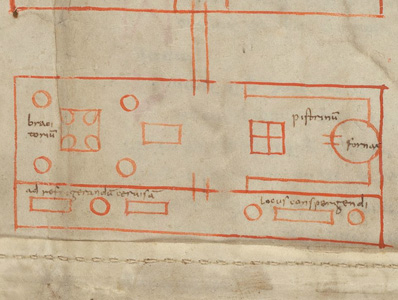 braci
toriu᷈
pistrinu᷈
fornax
ad refrigerandu᷈ ceruisa᷈
locus conspergendi